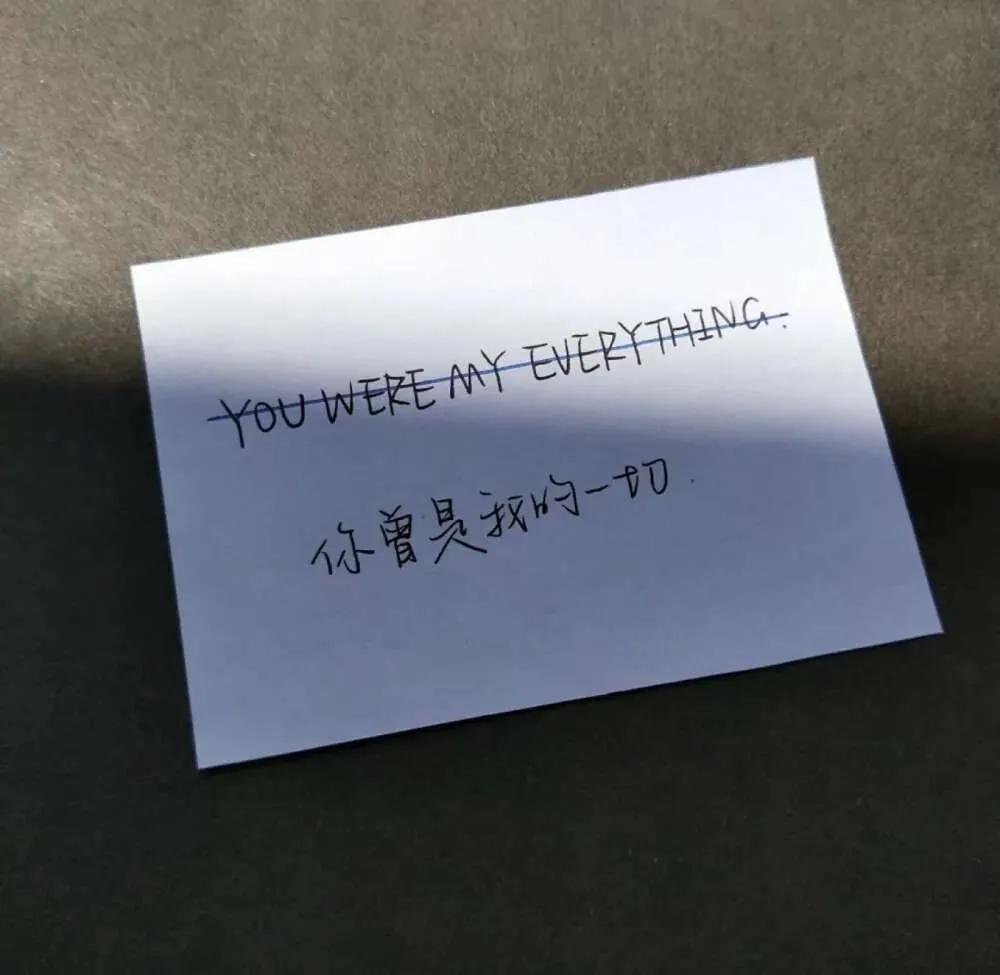 YOU WERE MY EVERYTHING.
你曾是我的一切.